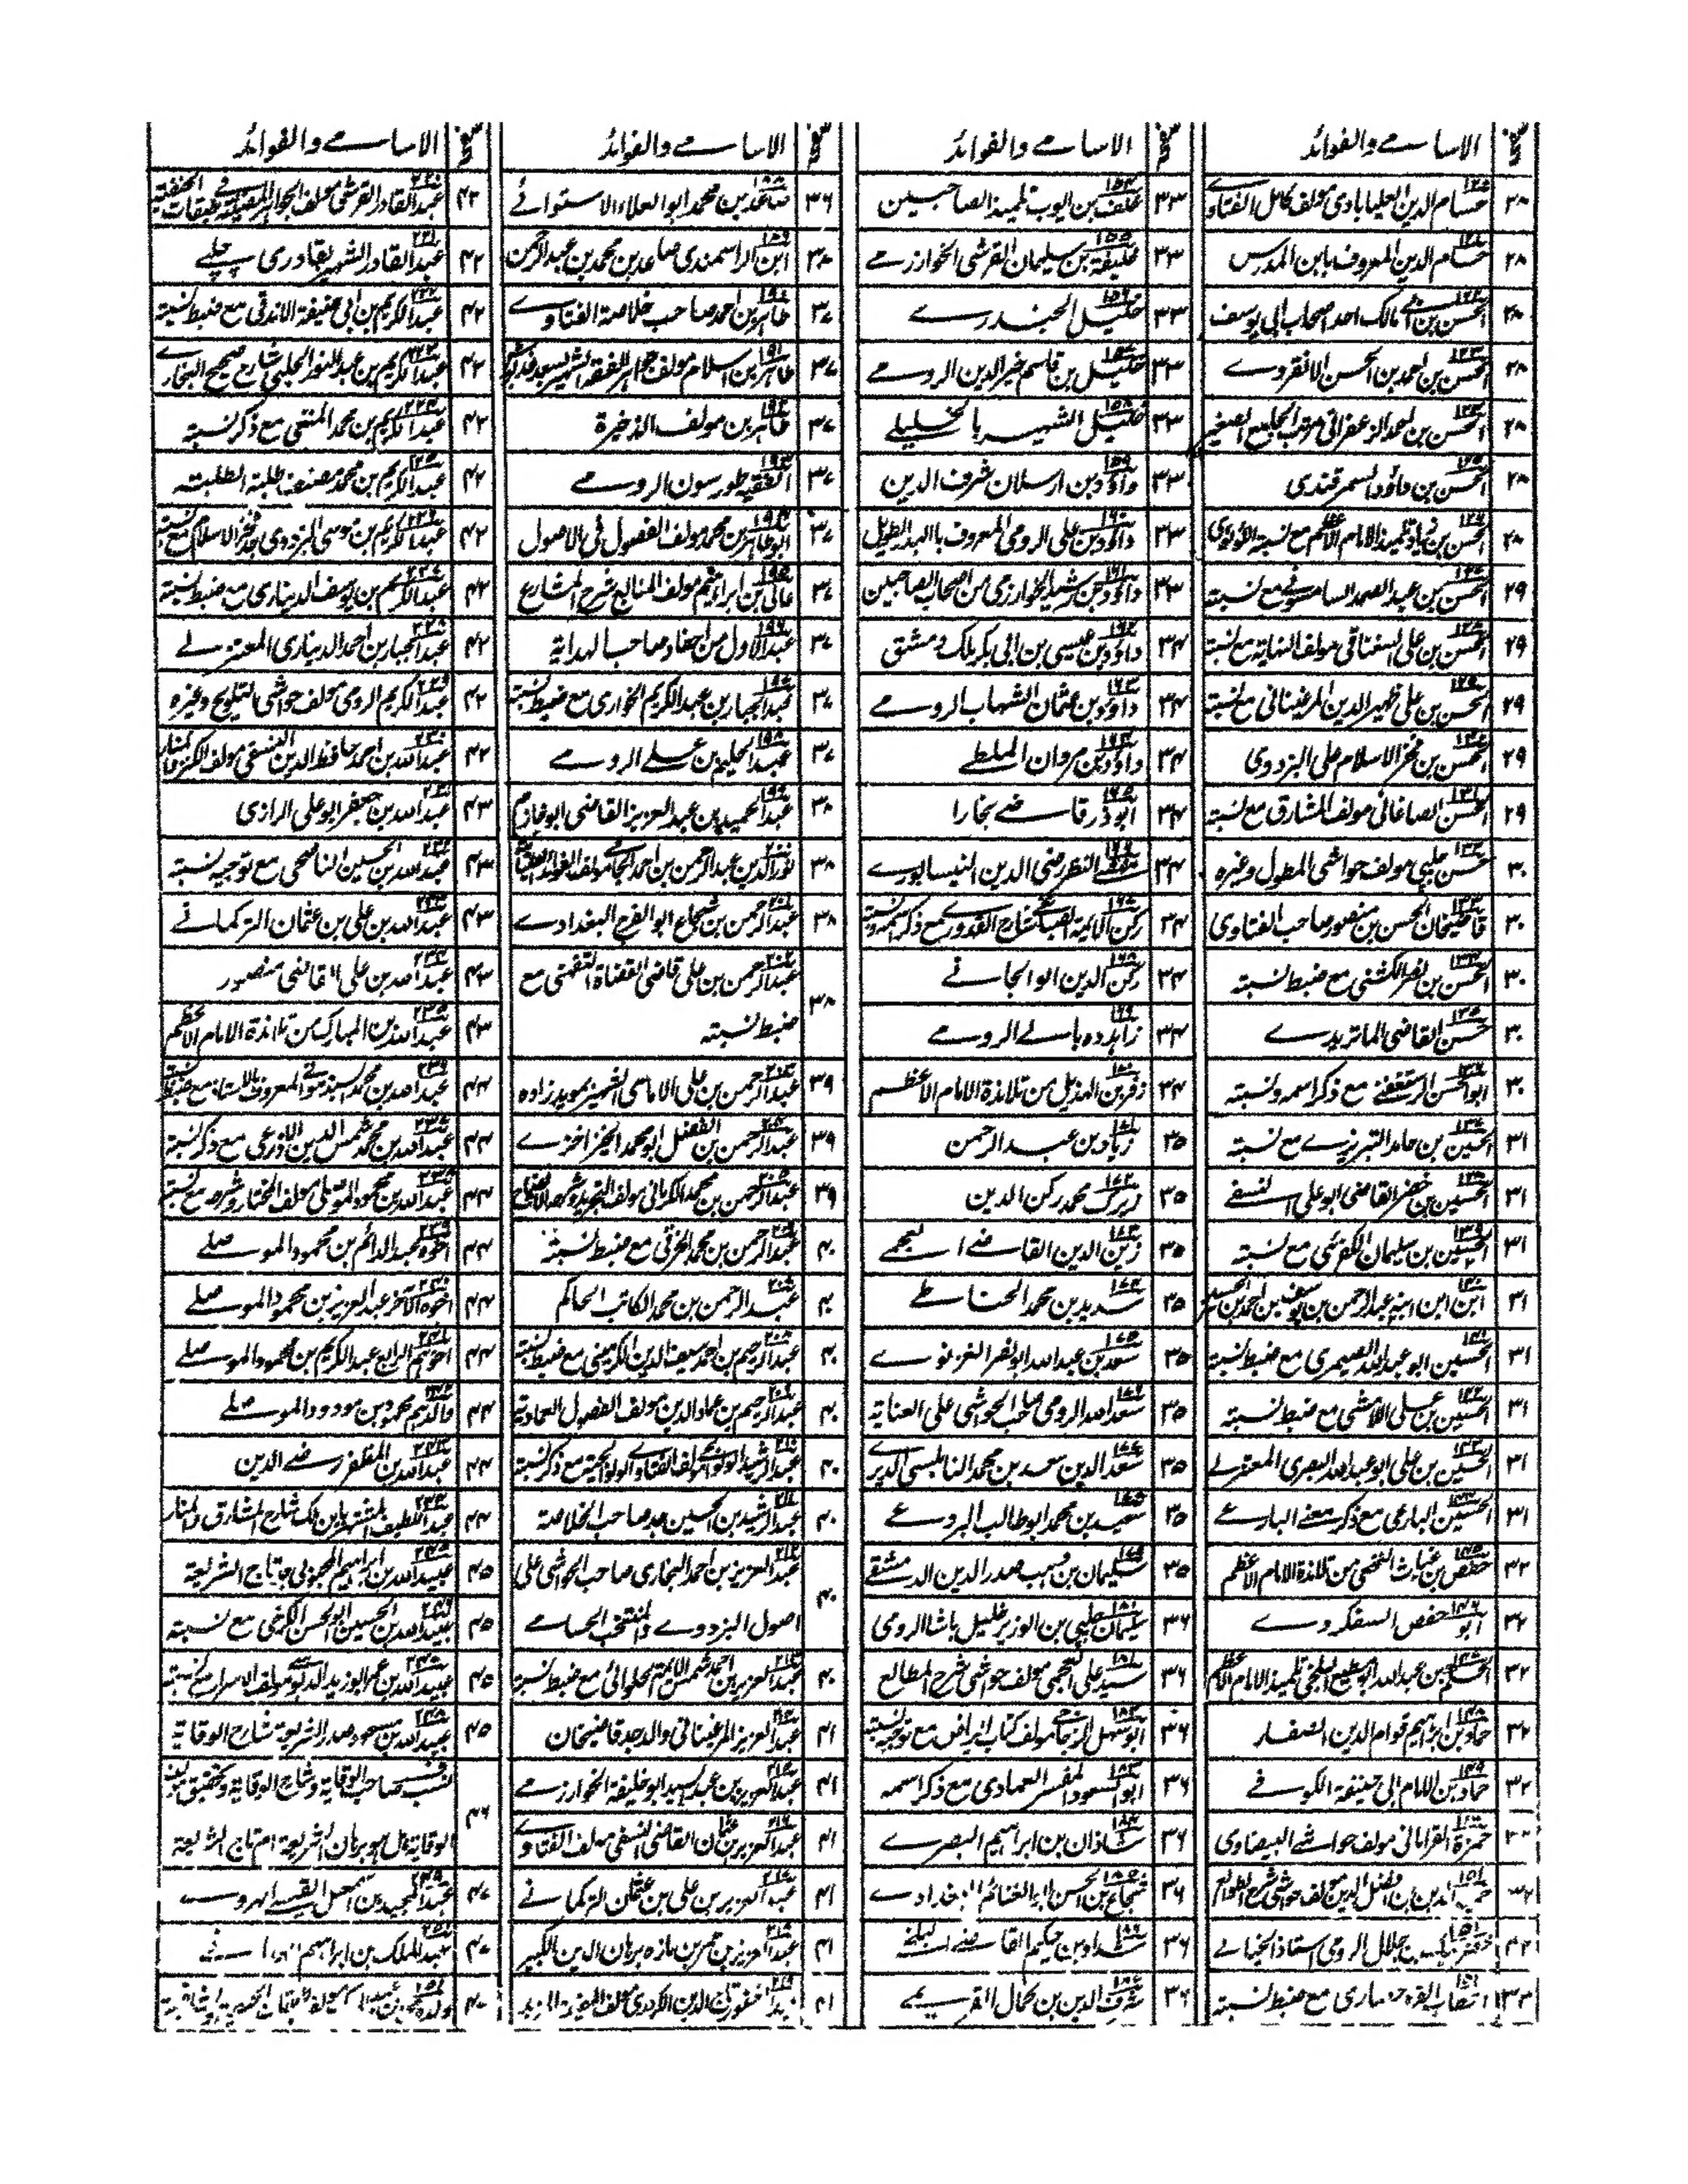 صفحه الاسامے والفوائد
۲۸ حسام الدين العليابادى مولف كامل الفتاوے
۲۸ حسام الدين المعروف بابن المدرس
۲۸ الحسن بن ابى مالك احد اصحاب ابى يوسف
۲۸ الحسن بن احمد بن الحسن الانقروے
۲۸ الحسن بن احمد الزعفرانى مرتب الجامع الصغير
۲۸ الحسن بن داؤد السمرقندى
۲۸ الحسن بن زياد تلميذ الامام الاعظم مع نسبة اللؤلوى
۲۹ الحسن بن عبد الصمد السامسونے مع نسبته
۲۹ الحسن بن على السغناقى مولف النهاية مع نسبته
۲۹ الحسن بن على ظهير الدين المرغينانى مع نسبته
۲۹ الحسن بن فخر الاسلام على البزدوى
۲۹ الحسن الصاغانى مولف المشارق مع نسبته
۳۰ حسن چلپى مولف حواشى المطول وغيره
۳۰ قاضيخان الحسن بن منصور صاحب الفتاوى
۳۰ الحسن بن نصر الكشنى مع ضبط نسبته
۳۰ حسن القاضى الماتريدے
۳۰ ابو الحسن الرستغفنے مع ذكر اسمه ونسبته
۳۱ الحسين بن حامد التبريزے مع نسبته
۳۱ الحسين بن خضر القاضى ابو على النسفے
۳۱ الحسين بن سليمان الكفرى مع نسبته
۳۱ ابن ابن ابنه عبد الرحمن بن يوسف بن احمد بن الحسين
۳۱ الحسين ابو عبد الله الصيمرى مع ضبط نسبته
۳۱ الحسين بن على اللامشى مع ضبط نسبته
۳۱ الحسين بن على ابو عبد الله البصرى المعتزلے
۳۱ الحسين البارعى مع ذكر معنے البارعے
۳۲ حفص بن غياث النخعى من تلامذة الامام الاعظم
۳۲ ابو حفص السفكردرے
۳۲ الحكم بن عبد الله ابو مطيع البلخى تلميذ الامام الاعظم
۳۲ حماد بن ابراهيم قوام الدين الصفار
۳۲ حماد بن الامام ابى حنيفة الكوفے
حمزة القرامانى مولف حواشے البيضاوى
۳۲ حميد الدين بن افضل الدين مولف حواشى شرح الطوالع
۳۲ خضر بيك بن جلال الرومى استاذ الخيالے
۳۳ خطاب القره حصارى مع ضبط نسبته
صفحه الاسامے والفوائد
۳۳ خلف بن ايوب تلميذ الصاحبين
۳۳ خليفة بن سليمان القرشى الخوارزمے
۳۳ خليل الجندرے
۳۳ خليل بن قاسم خير الدين الرومے
۳۳ خليل الشهير بالخليلے
۳۳ داؤد بن ارسلان شرف الدين
۳۳ داؤد بن على الرومى المعروف بالبدر الطويل
۳۳ داؤد بن رشيد الخوارزمى من اصحاب الصاحبين
۳۴ داؤد بن عيسى بن ابى بكر ملك دمشق
۳۴ داؤد بن عثمان الشهاب الرومے
۳۴ داؤد بن مروان الملطے
۳۴ ابو ذر قاضے بخارا
۳۴ رضے النظر رضى الدين النيسابورے
۳۴ ركن الايمة الصباغے شارح القدورے مع ذكر اسمه ونسبته
۳۴ ركن الدين الوالجانے
۳۴ زاهده بالے الرومے
۳۴ زفر بن الهذيل من تلامذة الامام الاعظم
۳۵ زياد بن عبد الرحمن
۳۵ زيرك محمد ركن الدين
۳۵ زين الدين القاضے العجمے
۳۵ سديد بن محمد الحناطے
۳۵ سعد بن عبد الله ابو نصر الغزنوے
۳۵ سعد الله الرومى صاحب الحواشى على العناية
۳۵ سعد الدين سعد بن محمد النابلسى الديرے
۳۵ سعيد بن محمد ابو طالب البردعے
۳۵ سليمان بن وهيب صدر الدين الدمشقے
۳۶ سليمان چلپى بن الوزير خليل باشا الرومى
۳۶ سيد على العجمى مولف حواشى شرح المطالع
۳۶ ابو سهل الزجاجے مولف كتاب الرياض مع توجيه نسبته
۳۶ ابو السعود المفسر العمادى مع ذكر اسمه
۳۶ شاذان بن ابراهيم البصرے
۳۶ شجاع بن الحسن ابو الغنائم البغدادے
۳۶ شداد بن حكيم القاضے البلخے
۳۶ شرف الدين بن كمال القريمے
صفحه الاسامے والفوائد
۳۶ صاعد بن محمد ابو العلاء الاستوائے
۳۷ ابن الراسمندى صاعد بن محمد بن عبد الرحمن
۳۷ طاهر بن احمد صاحب خلاصة الفتاوے
۳۷ طاهر بن اسلام مولف جواهر الفقه الشهير بسعد غديوش
۳۷ طاهر بن مولف الذخيرة
۳۷ الفقيه طورسون الرومے
۳۷ ابو طاهر بن محمد مولف الفصول فى الاصول
۳۷ عالى بن ابراهيم مولف المنابع شرح المشارع
۳۷ عبد الاول من احفاد صاحب الهداية
۳۷ عبد الجبار بن عبد الكريم الخوارى مع ضبط نسبته
۳۷ عبد الحليم بن علے الرومے
۳۸ عبد الحميد بن عبد العزيز القاضى ابو خازم
۳۸ نور الدين عبد الرحمن بن احمد الجامے مولف الفوائد الضيائية
۳۸ عبد الرحمن بن شجاع ابو الفرج البغدادے
۳۸ عبد الرحمن بن على قاضى القضاة التفهنى مع
ضبط نسبته
۳۹ عبد الرحمن بن على الاماسى الشهير بمويد زاده
۳۹ عبد الرحمن بن الفضل ابو محمد الخيزاخزے
۳۹ عبد الرحمن بن محمد الكرمانى مولف التجريد وشرحه الايضاح
۴۰ عبد الرحمن بن محمد الخرقى مع ضبط نسبته
۴۰ عبد الرحمن بن محمد الكاتب الحاكم
۴۰ عبد الرحيم بن احمد سيف الدين الكرمينى مع ضبط نسبته
۴۰ عبد الرحيم بن عماد الدين مولف الفصول العمادية
۴۰ عبد الرشيد الولوالجے مولف الفتاوے الولوالجية مع ذكر نسبته
۴۰ عبد الرشيد بن الحسين جد صاحب الخلاصة
۴۰ عبد العزيز بن احمد البخارى صاحب الحواشى على
اصول البزدوے والمنتخب الحسامے
۴۰ عبد العزيز بن احمد شمس الائمة الحلوائى مع ضبط نسبته
۴۱ عبد العزيز المرغينانى والد جد قاضيخان
۴۱ عبد العزيز بن عبد السيد ابو خليفة الخوارزمے
۴۱ عبد العزيز بن عثمان القاضى النسفى مولف الفتاوے
۴۱ عبد العزيز بن على بن عثمان التركمانے
۴۱ عبد العزيز بن عمر بن مازه برهان الدين الكبير
۴۱ عبد الغفور تاج الدين الكردرى مولف المفيد والمزيد
صفحه الاسامے والفوائد
۴۲ عبد القادر القرشى مولف الجواهر المضيئة فے طبقات الحنفية
۴۲ عبد القادر الشهير بقادرى چلپے
۴۲ عبد الكريم بن ابى حنيفة الاندقى مع ضبط نسبته
۴۲ عبد الكريم بن عبد النور الحلبى شارح صحيح البخارے
۴۲ عبد الكريم بن محمد المتقى مع ذكر نسبته
۴۲ عبد الكريم بن محمد مصنف طلبة الطلبة
۴۲ عبد الكريم بن موسى البزدوى جد فخر الاسلام مع نسبته
۴۲ عبد الكريم بن يوسف الدينارى مع ضبط نسبته
۴۲ عبد الجبار بن احمد الدينارى المعتزلے
۴۲ عبد الكريم الرومى مولف حواشى التلويح وغيره
۴۲ عبد الله بن احمد حافظ الدين النسفى مولف الكنز والمنار
۴۳ عبد الله بن جعفر ابو على الرازى
۴۳ عبد الله بن الحسين الناصحى مع توجيه نسبته
۴۳ عبد الله بن على بن عثمان التركمانے
۴۳ عبد الله بن على القاضى منصور
۴۳ عبد الله بن المبارك من تلامذة الامام الاعظم
۴۴ عبد الله بن محمد السبذمونے المعروف بالاستاذ مع ضبط نسبته
۴۴ عبد الله بن محمد شمس الدين الاذرعى مع ذكر نسبته
۴۴ عبد الله بن محمود الموصلى مولف المختار وشرحه مع نسبته
۴۴ اخوه عبد الدائم بن محمود الموصلے
۴۴ اخوه الآخر عبد العزيز بن محمود الموصلے
۴۴ اخوهم الرابع عبد الكريم بن محمود الموصلے
۴۴ والدهم محمود بن مودود الموصلے
۴۴ عبد الله بن المظفر رضے الدين
۴۴ عبد اللطيف المشتهر بابن ملك شارح المشارق والمنار
۴۵ عبيد الله بن ابراهيم المحبوبى جد تاج الشريعة
۴۵ عبيد الله بن الحسين ابو الحسن الكرخى مع نسبته
۴۵ عبيد الله بن عمر ابو زيد الدبوسے مولف الاسرار مع نسبته
۴۵ عبيد الله بن مسعود صدر الشريعة شارح الوقاية
۴۶ نسب صاحب الوقاية وشارح الوقاية وتحقيق مولف
الوقاية هل هو برهان الشريعة ام تاج الشريعة
۴۷ عبد المجيد بن اسمعيل القيسے الهروے
۴۷ عبد الملك بن ابراهيم الهمدانے